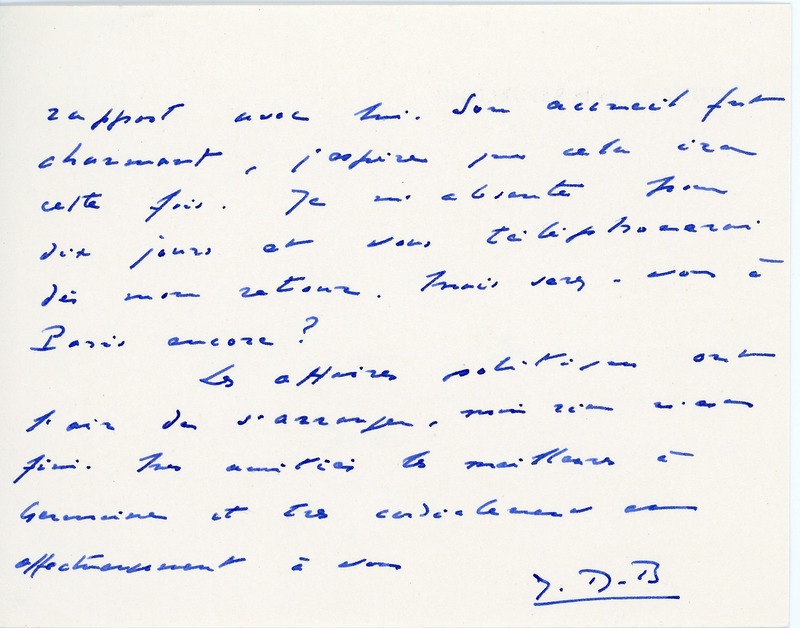 rapport avec lui. Son accueil fut
charmant, j'espère que cela ira
cette fois. Je m'absente pour
dix jours et vous téléphonerai
dès mon retour. Mais serez-vous à
Paris encore ?
Les affaires politiques ont
l'air de s'arranger, mais rien n'est
fini. Mes amitiés les meilleures à
Germaine et très cordialement
affectueusement à vous
J. D.-B